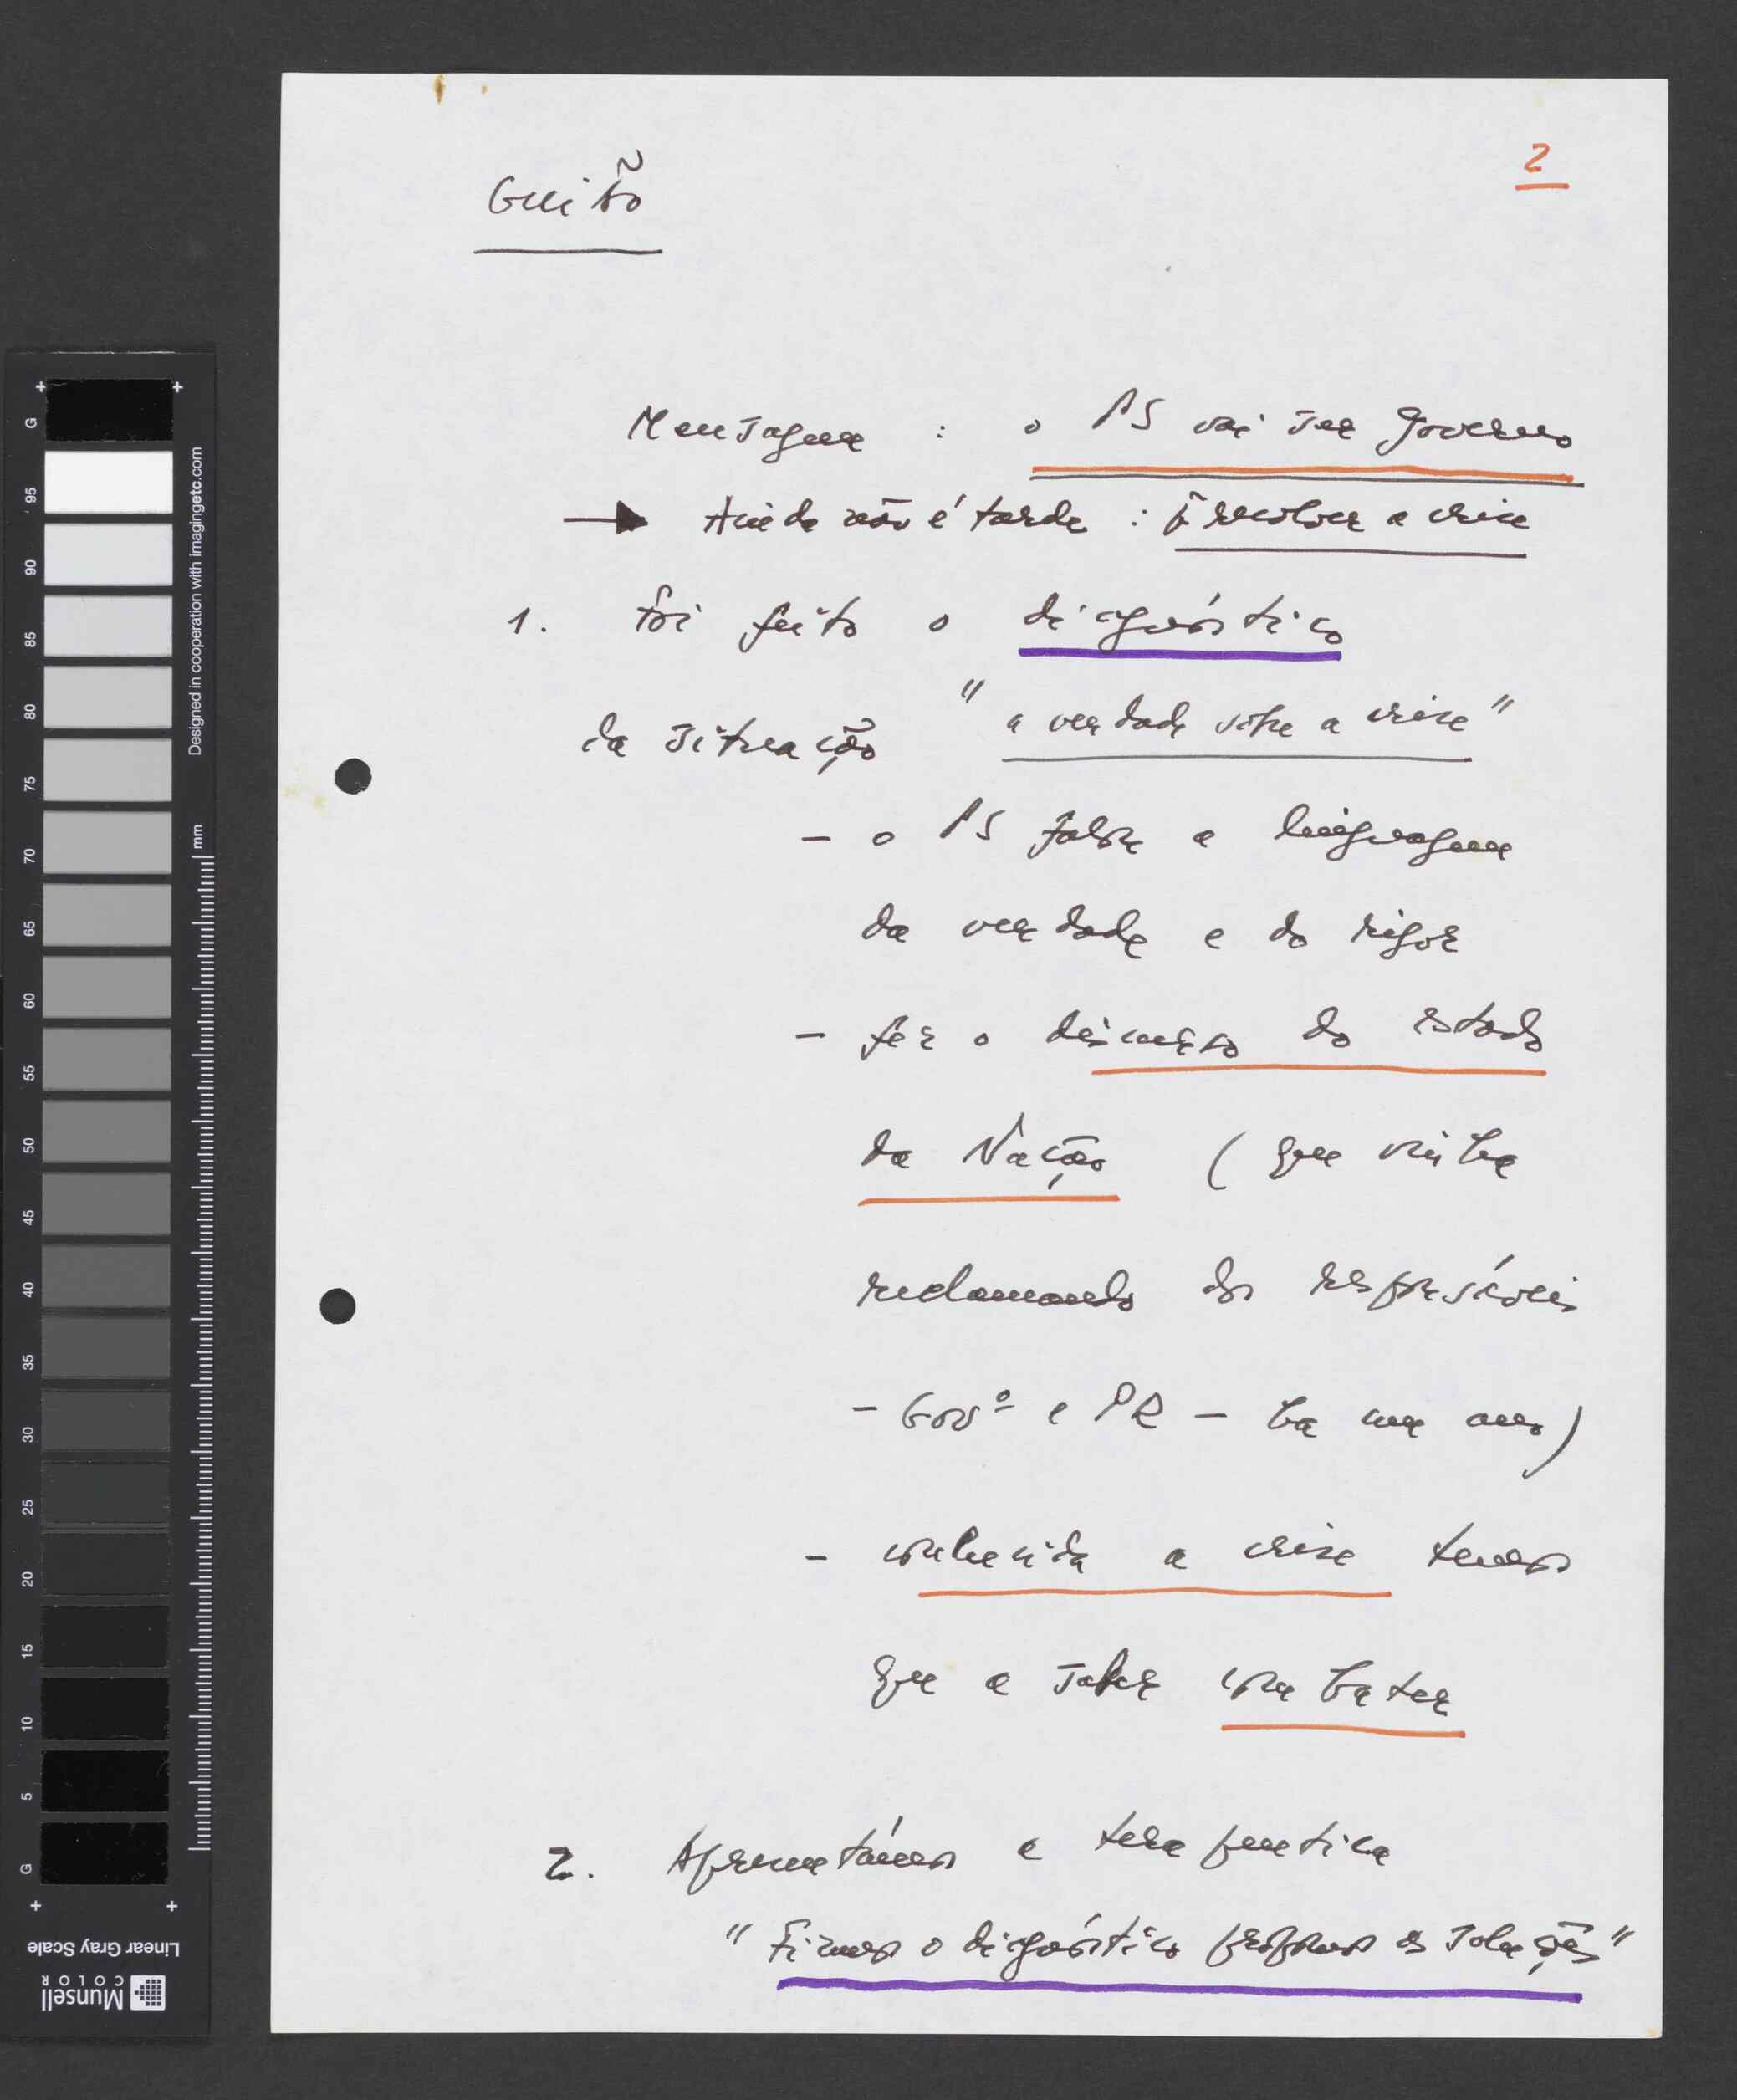 2
Guião
Mensagem : o PS vai ser Governo
→ Ainda não é tarde : p.ª resolver a crise
1. Foi feito o diagnóstico
da situação "a verdade sobre a crise"
- o PS falou a linguagem
da verdade e do rigor
- fez o discurso do estado
da Nação (que vinha
reclamando dos responsáveis
- Govº e PR - há um ano)
- conhecida a crise temos
que a saber combater
2. Apresentámos a terapeutica
"Fizemos o diagnóstico propomos as soluções"
Designed in cooperation with imagingetc.com
mm
G
95
90
85
80
75
70
65
60
55
50
45
40
35
30
25
20
15
10
5
G
Linear Gray Scale
Munsell
COLOR